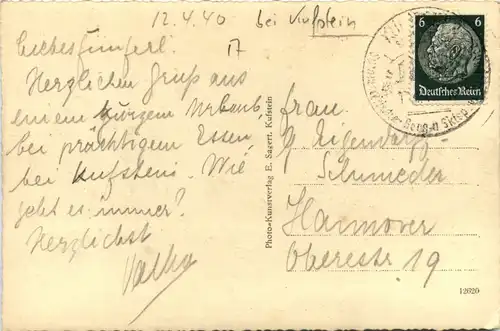 12.4.40 bei Kufstein
17
Herzlichen Gruß aus
einem kurzem Urlaub,
bei prächtigem Essen,
bei Kufstein. Wie
geht es immer?
Herzlichst
Photo-Kunstverlag E. Sagert, Kufstein
6 6
Deutsches Reich
Frau.
Schmieder
Hannover
Oberestr. 19
12620